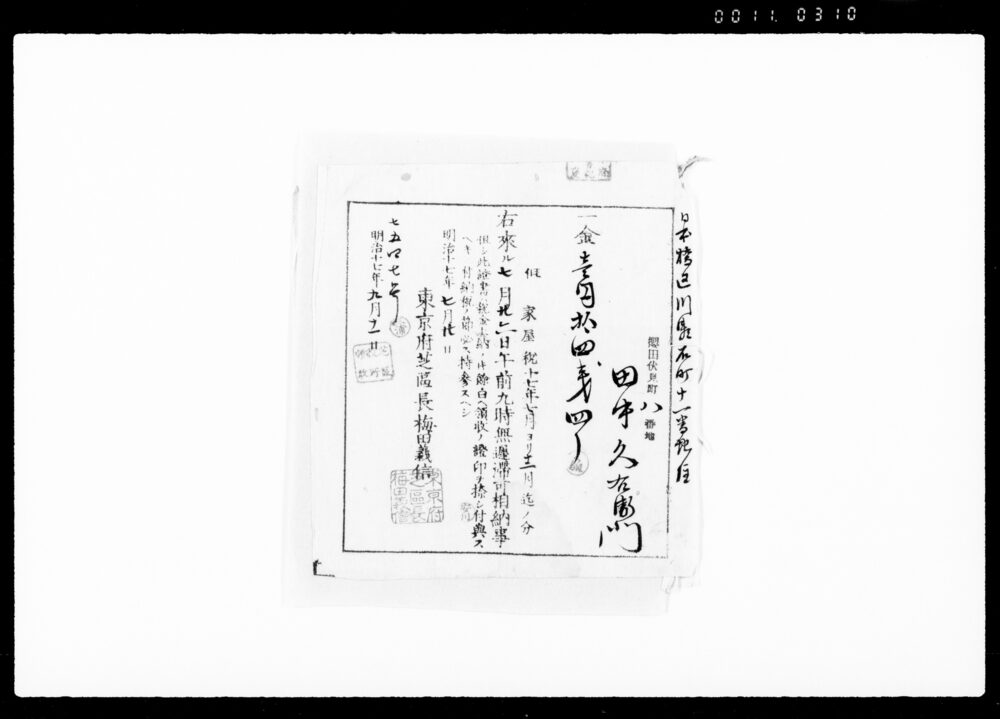 0011. 0310
日本橋区川瀬石町十一番地住
桜田伏見町 八 番地
田中久右衛門
一金壹円拾四銭四厘
但 家屋税十七年七月ヨリ十二月迄ノ分
右來ル七月廿六日午前九時無遅滞可相納事
但シ此證書ハ税金上納ノ節領收ノ證印ヲ捺シ付與ス
ヘキニ付納税ノ節必ス持參スヘシ
明治十七年七月
東京府芝區長梅田義信
七五四七号
明治十七年九月十一日
東京府
芝區長